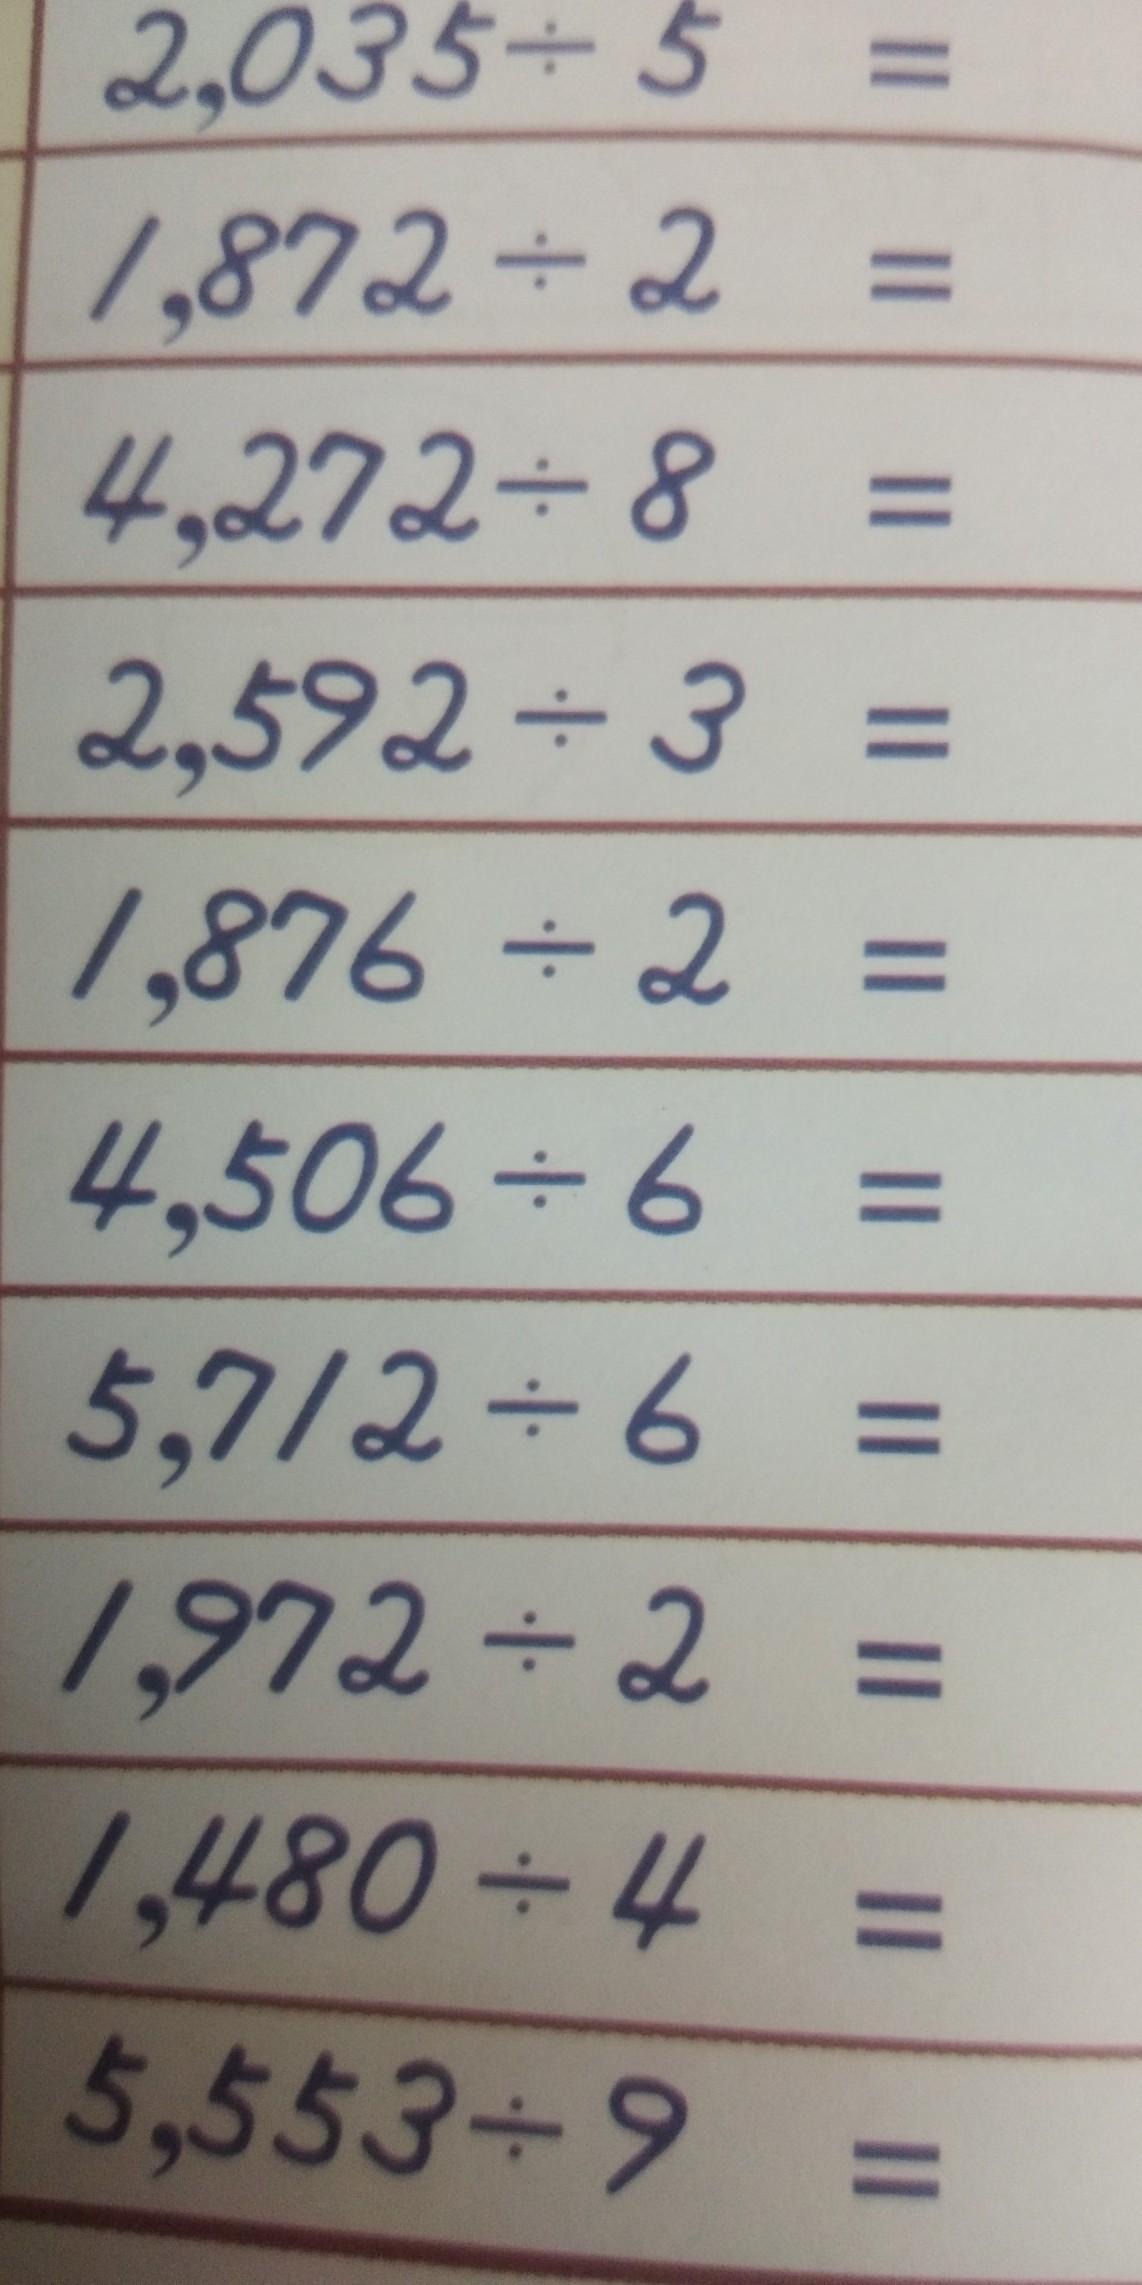 2,035÷ 5 =
1,872 ÷ 2 =
4,272÷ 8 =
2,592 ÷ 3 =
1,876 ÷ 2 =
4,506 ÷ 6 =
5,712 ÷ 6 =
1,972 ÷ 2 =
1,480 ÷ 4 =
5,553÷ 9 =